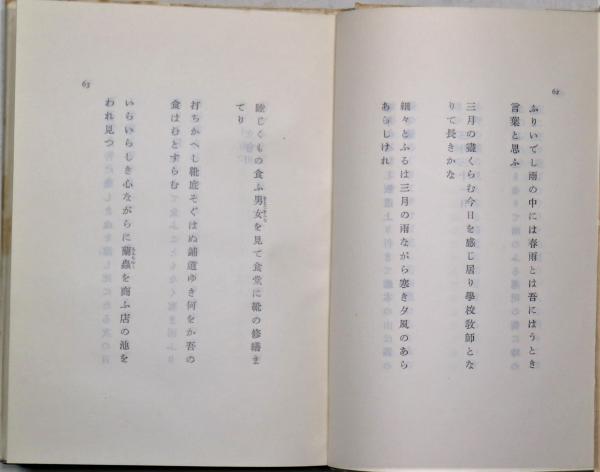 62
ふりいでし雨の中には春雨とは吾にはうとき
言葉と思ふ
三月の盡くらむ今日を感じ居り學校教師とな
りて長きかな
細々とふるは三月の雨ながら寒き夕風のあら
あらしけれ
63
睦じくもの食ふ男女を見て食堂に靴の修繕ま
てり
打ちかへし靴底そぐはぬ鋪道ゆき何をか吾の
食はむとすらむ
いらいらしき心ながらに蘭蟲を商ふ店の池を
われ見つ